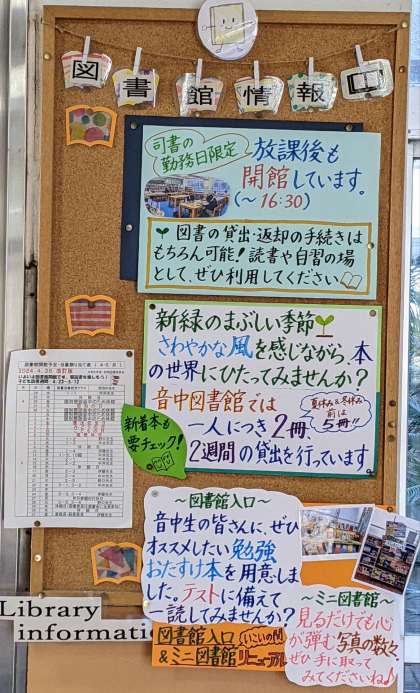 図書館情報口
司書の
勤務日限定
放課後も
開館しています。
(〜16:30)
図書の貸出・返却の手続きは
もちろん可能!読書や自習の場
として、ぜひ利用してください
新緑のまぶしい季節
さわやかな風を感じながら、本
の世界にひたってみませんか?
音中図書館では
一人につき2冊、
2週間の貸出を行っています
夏休み&冬休み
前は
5冊!!
新着本も
要チェック!
〜図書館入口〜
音中生の皆さんに、ぜひ
オススメしたい勉強
おたすけ本を用意しま
した。テストに備えて
一読してみませんか?
図書館入口
&ミニ図書館
いこいの間
リニューアル
〜ミニ図書館〜
見るだけでも心
が弾む写真の数々
ぜひ手に取って
みてくださいね♪
Library
informati